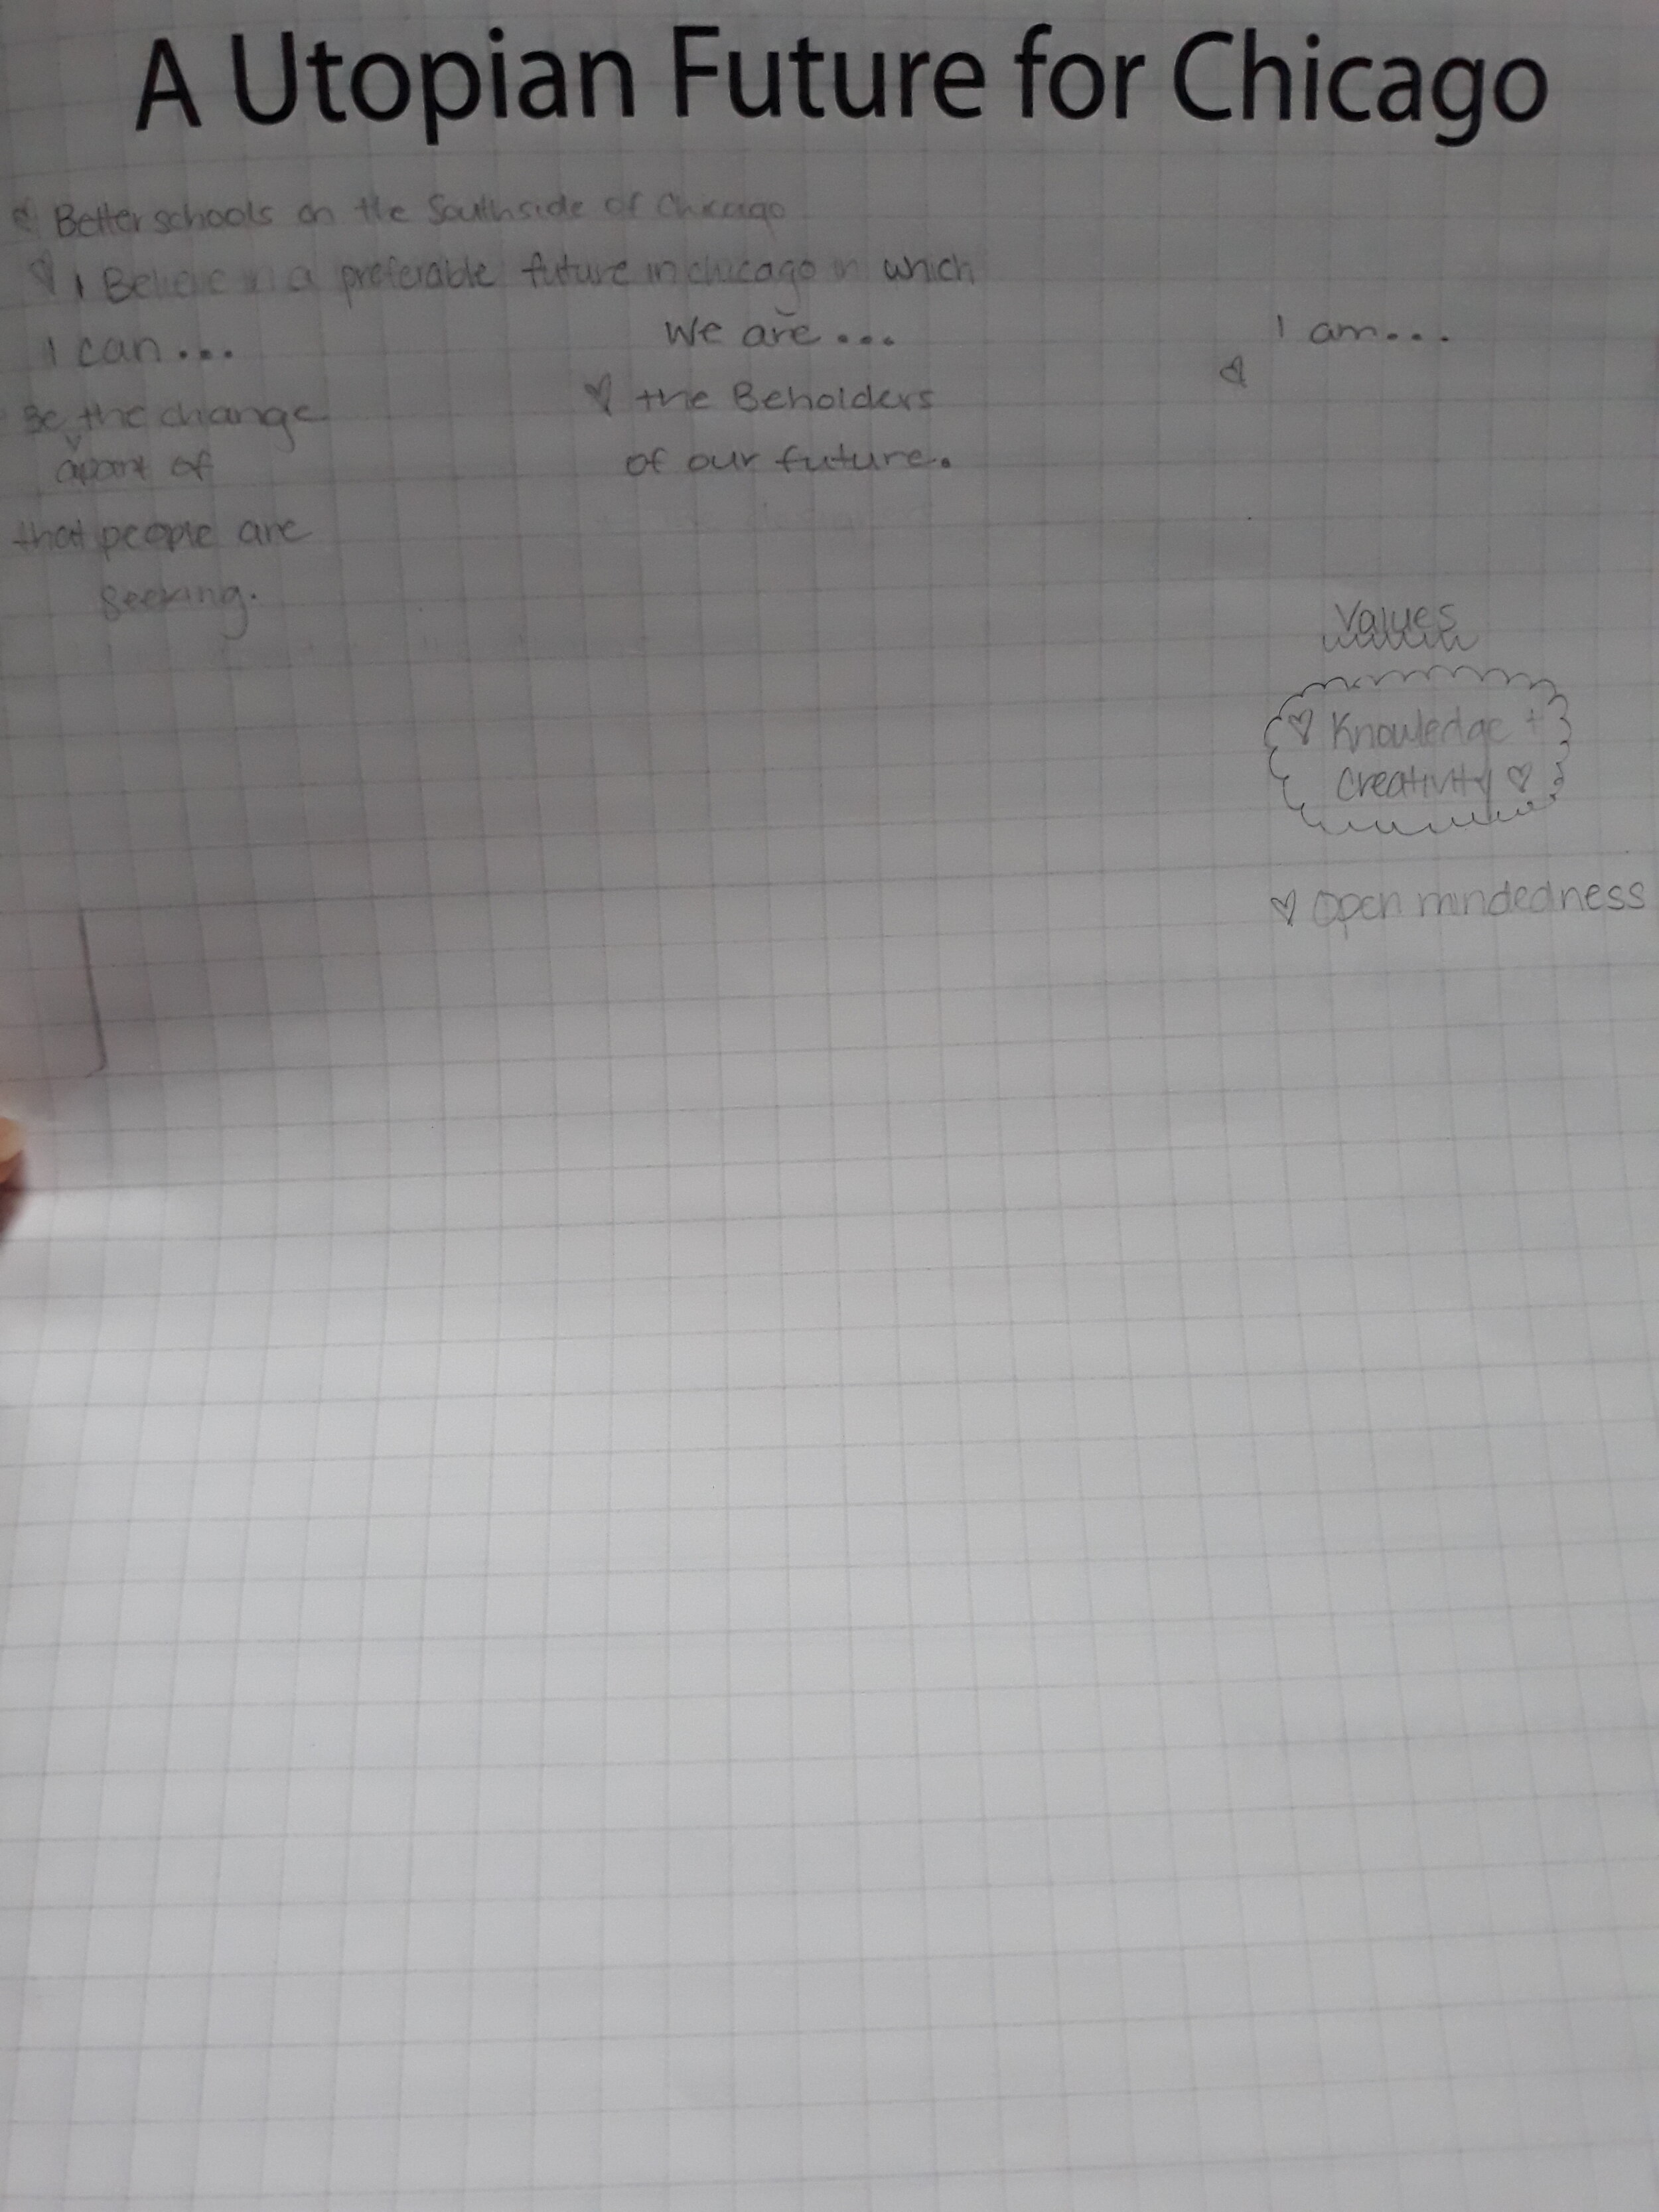 A Utopian Future for Chicago
Better schools on the Southside of Chicago
I Believe in a preferable future in chicago in which
I can...
Be the change
apart of
that people are
seeking.
We are...
the Beholders
of our future.
I am...
Values
Knowledge +
Creativity
Open mindedness